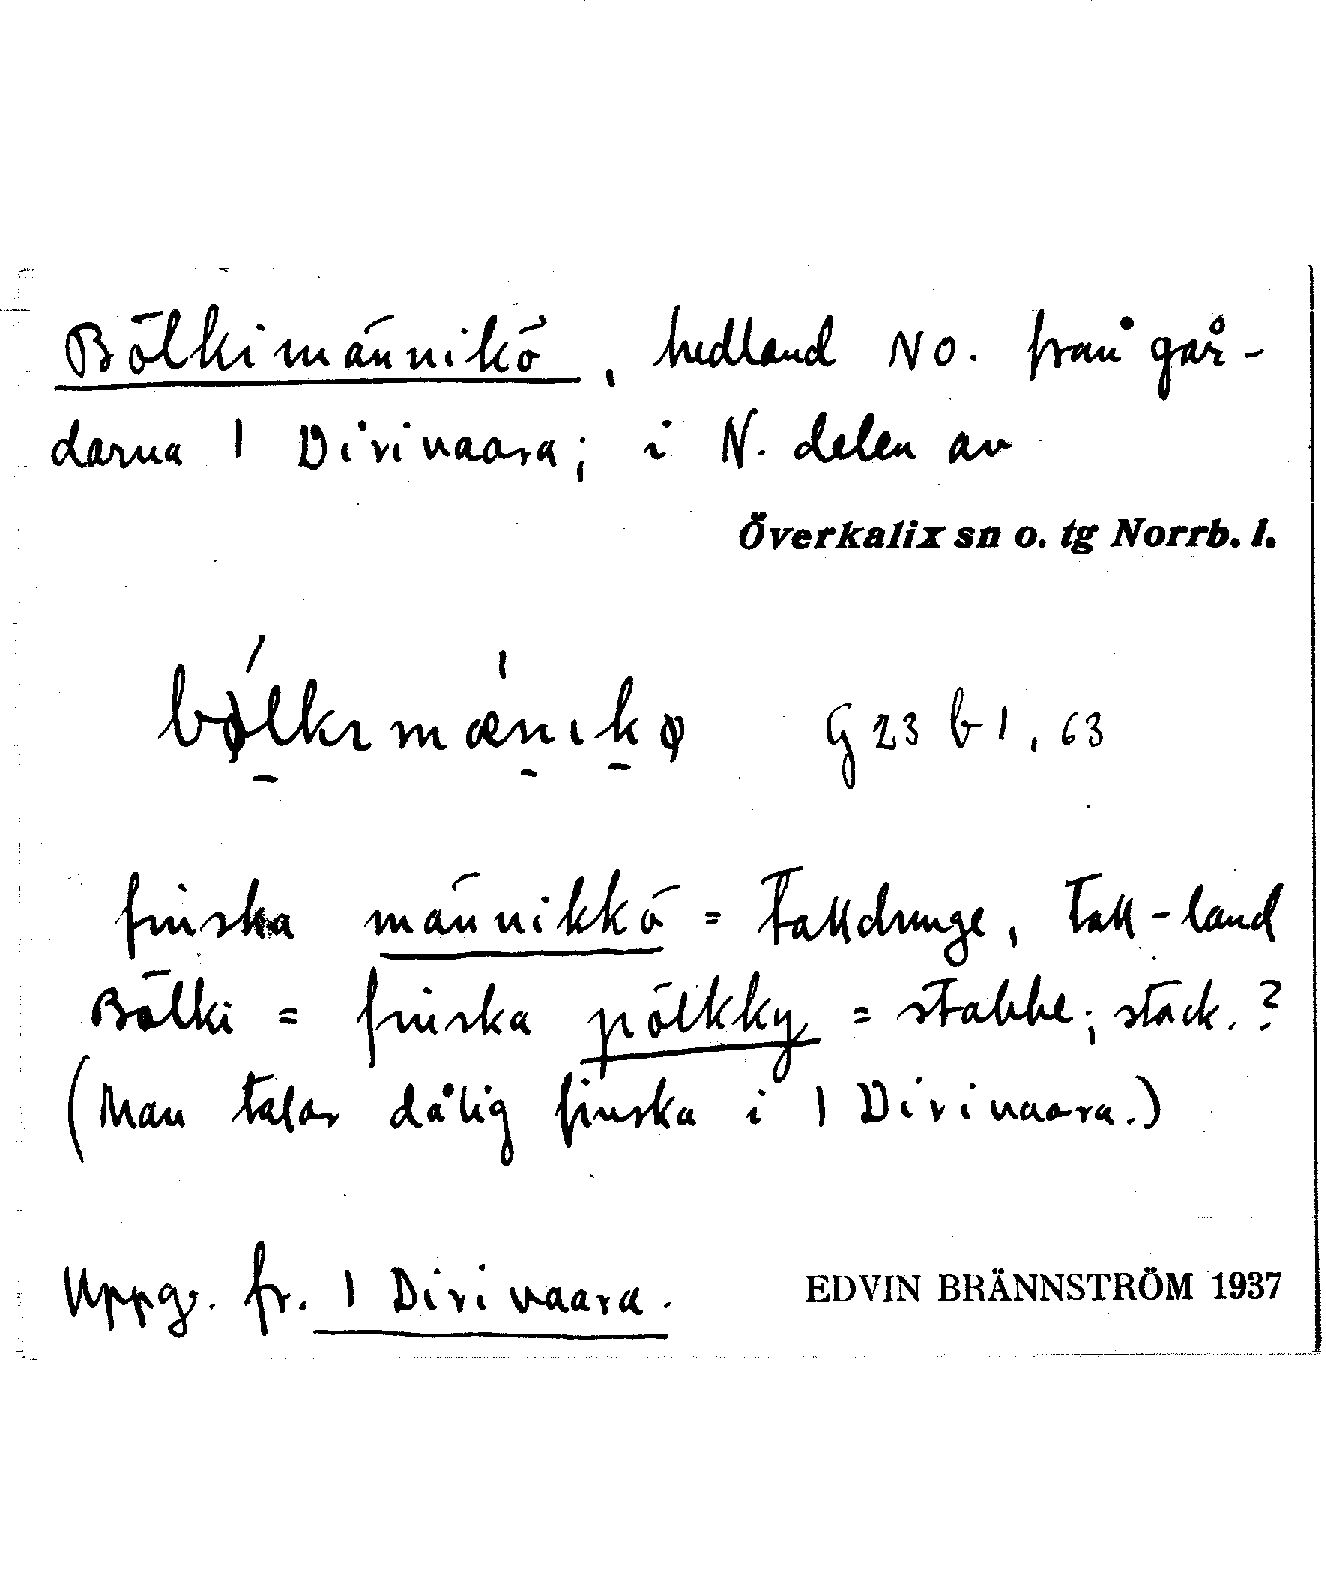 Bölkimännikö, hedland NO. från går-
darna 1 Dirivaara; i N. delen av
Överkalix sn o. tg Norrb. l.
bø̀lkımænıkø G 23 b 1, 63
finska männikkö = Talldunge, Tall-land
Bölki = finska pölkky = stabbe; stock.?
(Man talar dålig finska i 1 Dirivaara.)
Uppg. fr. 1 Dirivaara. EDVIN BRÄNNSTRÖM 1937